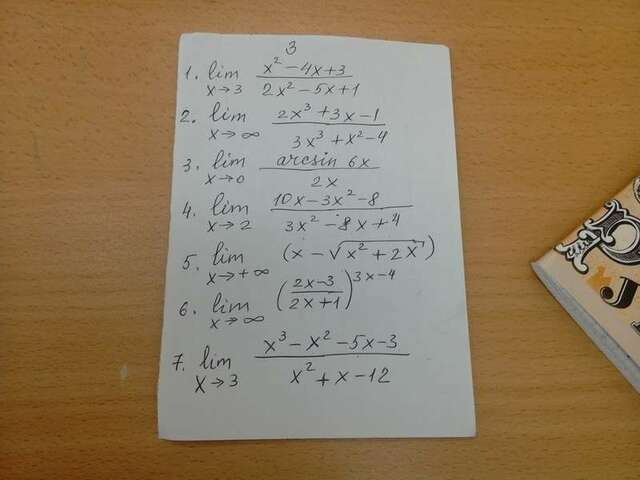 3
1. lim x→3 (x² − 4x + 3)/(2x² − 5x + 1)
2. lim x→∞ (2x³ + 3x − 1)/(3x³ + x² − 4)
3. lim x→0 (arcsin 6x)/(2x)
4. lim x→2 (10x − 3x² − 8)/(3x² − 8x + 4)
5. lim x→+∞ (x − √(x² + 2x))
6. lim x→∞ ((2x − 3)/(2x + 1))^(3x − 4)
7. lim x→3 (x³ − x² − 5x − 3)/(x² + x − 12)